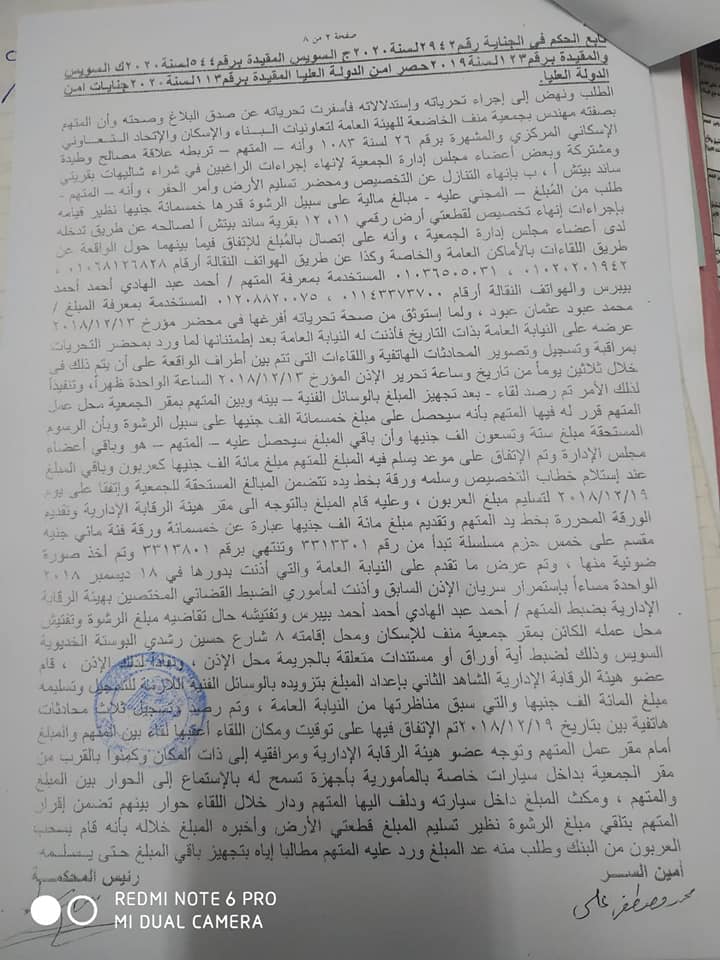 صفحة ٢ من ٨
تابع الحكم في الجناية رقم ٢٩٤٢ لسنة ٢٠٢٠ ج السويس المقيدة برقم ٥٤٤ لسنة ٢٠٢٠ ك السويس
والمقيدة برقم ١٢٣ لسنة ٢٠١٩ حصر امن الدولة العليا المقيدة برقم ١١٣ لسنة ٢٠٢٠ جنايات امن
الدولة العليا.
الطلب ونهض إلى إجراء تحرياته وإستدلالاته فأسفرت تحرياته عن صدق البلاغ وصحته وأن المتهم
بصفته مهندس بجمعية منف الخاضعة للهيئة العامة لتعاونيات البناء والإسكان والإتحاد التعاوني
الإسكاني المركزي والمشهرة برقم ٢٦ لسنة ١٠٨٣ وأنه – المتهم – تربطه علاقة مصالح وطيدة
ومشتركة وبعض أعضاء مجلس إدارة الجمعية لإنهاء إجراءات الراغبين في شراء شاليهات بقريتي
ساند بيتش أ ، ب بإنهاء التنازل عن التخصيص ومحضر تسليم الأرض وأمر الحفر ، وأنه – المتهم -
طلب من المُبلغ – المجني عليه - مبالغ مالية على سبيل الرشوة قدرها خمسمائة جنيها نظير قيامه
بإجراءات إنهاء تخصيص لقطعتي أرض رقمي ١١، ١٢ بقرية ساند بيتش أ لصالحه عن طريق تدخله
لدى أعضاء مجلس إدارة الجمعية ، وأنه على إتصال بالمُبلغ للإتفاق فيما بينهما حول الواقعة عن
طريق اللقاءات بالأماكن العامة والخاصة وكذا عن طريق الهواتف النقالة أرقام ٠١٠٦٨١٢٦٨٢٨ ،
٠١٠٢٠٢٠١٩٤٢ ، ٠١٠٣٦٥٠٥٠٣١ المستخدمة بمعرفة المتهم / أحمد عبد الهادي أحمد أحمد
بيبرس والهواتف النقالة أرقام ٠١١٤٣٣٧٣٧٠٠ ، ٠١٢٠٨٨٢٠٠٧٥ المستخدمة بمعرفة المبلغ /
محمد عبود عثمان عبود ، ولما إستوثق من صحة تحرياته أفرغها فى محضر مؤرخ ٢٠١٨/١٢/١٣
عرضه على النيابة العامة بذات التاريخ فأذنت له النيابة العامة بعد إطمئنانها لما ورد بمحضر التحريات
بمراقبة وتسجيل وتصوير المحادثات الهاتفية واللقاءات التى تتم بين أطراف الواقعة على أن يتم ذلك فى
خلال ثلاثين يوماً من تاريخ وساعة تحرير الإذن المؤرخ ٢٠١٨/١٢/١٣ الساعة الواحدة ظهراً، وتنفيذاً
لذلك الأمر تم رصد لقاء - بعد تجهيز المبلغ بالوسائل الفنية – بينه وبين المتهم بمقر الجمعية محل عمل
المتهم قرر له فيها المتهم بأنه سيحصل على مبلغ خمسمائة الف جنيها على سبيل الرشوة وبأن الرسوم
المستحقة مبلغ ستة وتسعون الف جنيها وأن باقي المبلغ سيحصل عليه – المتهم – هو وباقي أعضاء
مجلس الإدارة وتم الإتفاق على موعد يسلم فيه المبلغ للمتهم مبلغ مائة الف جنيها كعربون وباقي المبلغ
عند إستلام خطاب التخصيص وسلمه ورقة بخط يده تتضمن المبالغ المستحقة للجمعية وإتفقا على يوم
٢٠١٨/١٢/١٩ لتسليم مبلغ العربون ، وعليه قام المبلغ بالتوجه الى مقر هيئة الرقابة الإدارية وتقديم
الورقة المحررة بخط يد المتهم وتقديم مبلغ مائة الف جنيها عبارة عن خمسمائة ورقة فئة مائي جنيه
مقسم على خمس حزم مسلسلة تبدأ من رقم ٣٣١٣٣٠١ وتنتهي برقم ٣٣١٣٨٠١ وتم أخذ صورة
ضوئية منها ، وتم عرض ما تقدم على النيابة العامة والتي أذنت بدورها في ١٨ ديسمبر ٢٠١٨
الواحدة مساءاً بإستمرار سريان الإذن السابق وأذنت لمأموري الضبط القضائي المختصين بهيئة الرقابة
الإدارية بضبط المتهم / أحمد عبد الهادي أحمد أحمد بيبرس وتفتيشه حال تقاضيه مبلغ الرشوة وتفتيش
محل عمله الكائن بمقر جمعية منف للإسكان ومحل إقامته ٨ شارع حسين رشدي البوستة الخديوية
السويس وذلك لضبط أية أوراق أو مستندات متعلقة بالجريمة محل الإذن ، ونفاذا لذلك الإذن ، قام
عضو هيئة الرقابة الإدارية الشاهد الثاني بإعداد المبلغ بتزويده بالوسائل الفنية اللازمة للتسجيل وتسليمه
مبلغ المائة الف جنيها والتي سبق مناظرتها من النيابة العامة ، وتم رصد وتسجيل ثلاث محادثات
هاتفية بين بتاريخ ٢٠١٨/١٢/١٩ تم الإتفاق فيها على توقيت ومكان اللقاء أعقبها لقاء بين المتهم والمبلغ
أمام مقر عمل المتهم وتوجه عضو هيئة الرقابة الإدارية ومرافقيه إلى ذات المكان وكمنوا بالقرب من
مقر الجمعية بداخل سيارات خاصة بالمأمورية بأجهزة تسمح له بالإستماع إلى الحوار بين المبلغ
والمتهم ، ومكث المبلغ داخل سيارته ودلف اليها المتهم ودار خلال اللقاء حوار بينهم تضمن إقرار
المتهم بتلقي مبلغ الرشوة نظير تسليم المبلغ قطعتي الأرض وأخبره المبلغ خلاله بأنه قام بسحب
العربون من البنك وطلب منه عد المبلغ ورد عليه المتهم مطالبا إياه بتجهيز باقي المبلغ حتى يسلمه
أمين السر
رئيس المحكمة
محمد مصطفى علي
REDMI NOTE 6 PRO
MI DUAL CAMERA